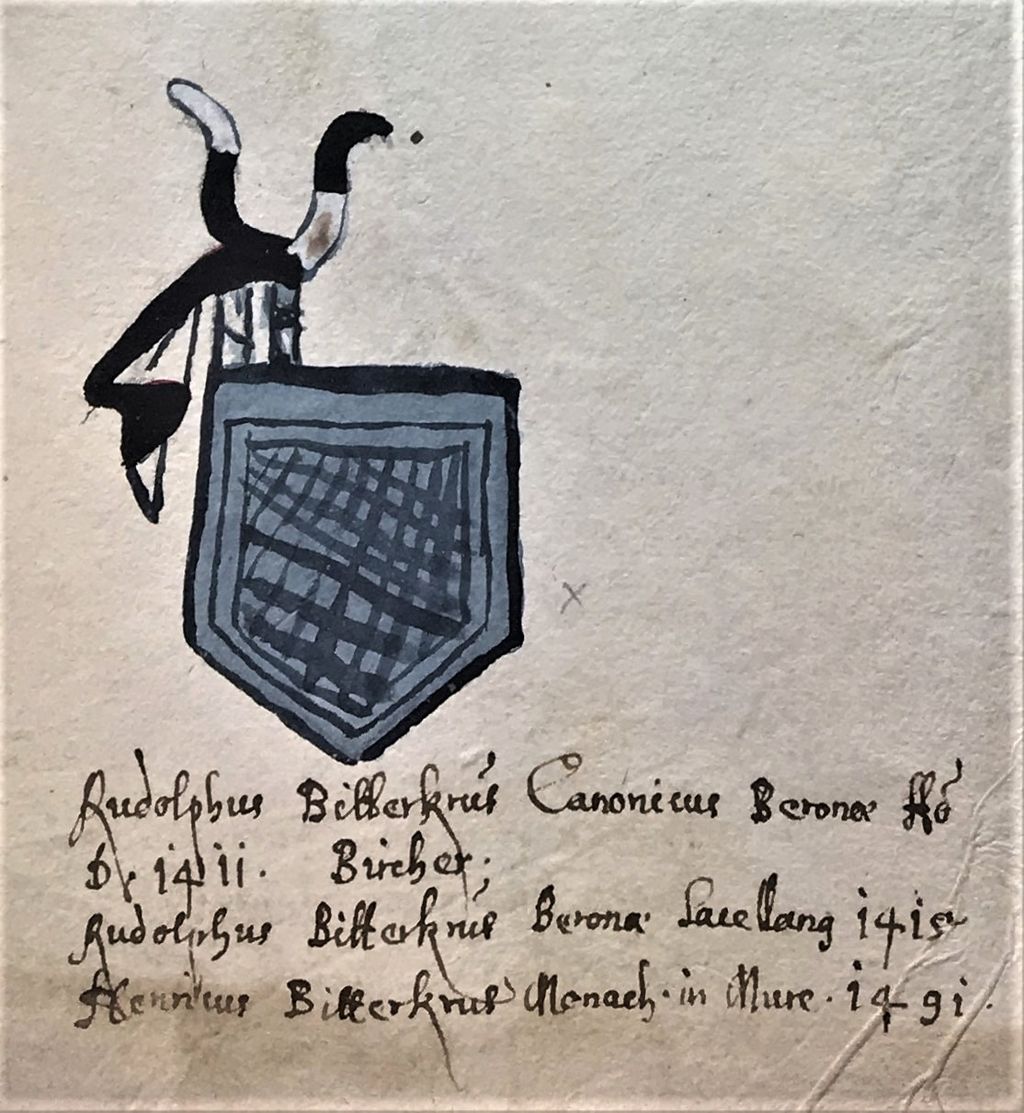 Rudolphus Bitterkrus Canonicus Beronæ
1411. Bircher;
Rudolphus Bitterkrus Beronæ 1415
Henricus Bitterkrus Monach. in Mure. 1491.